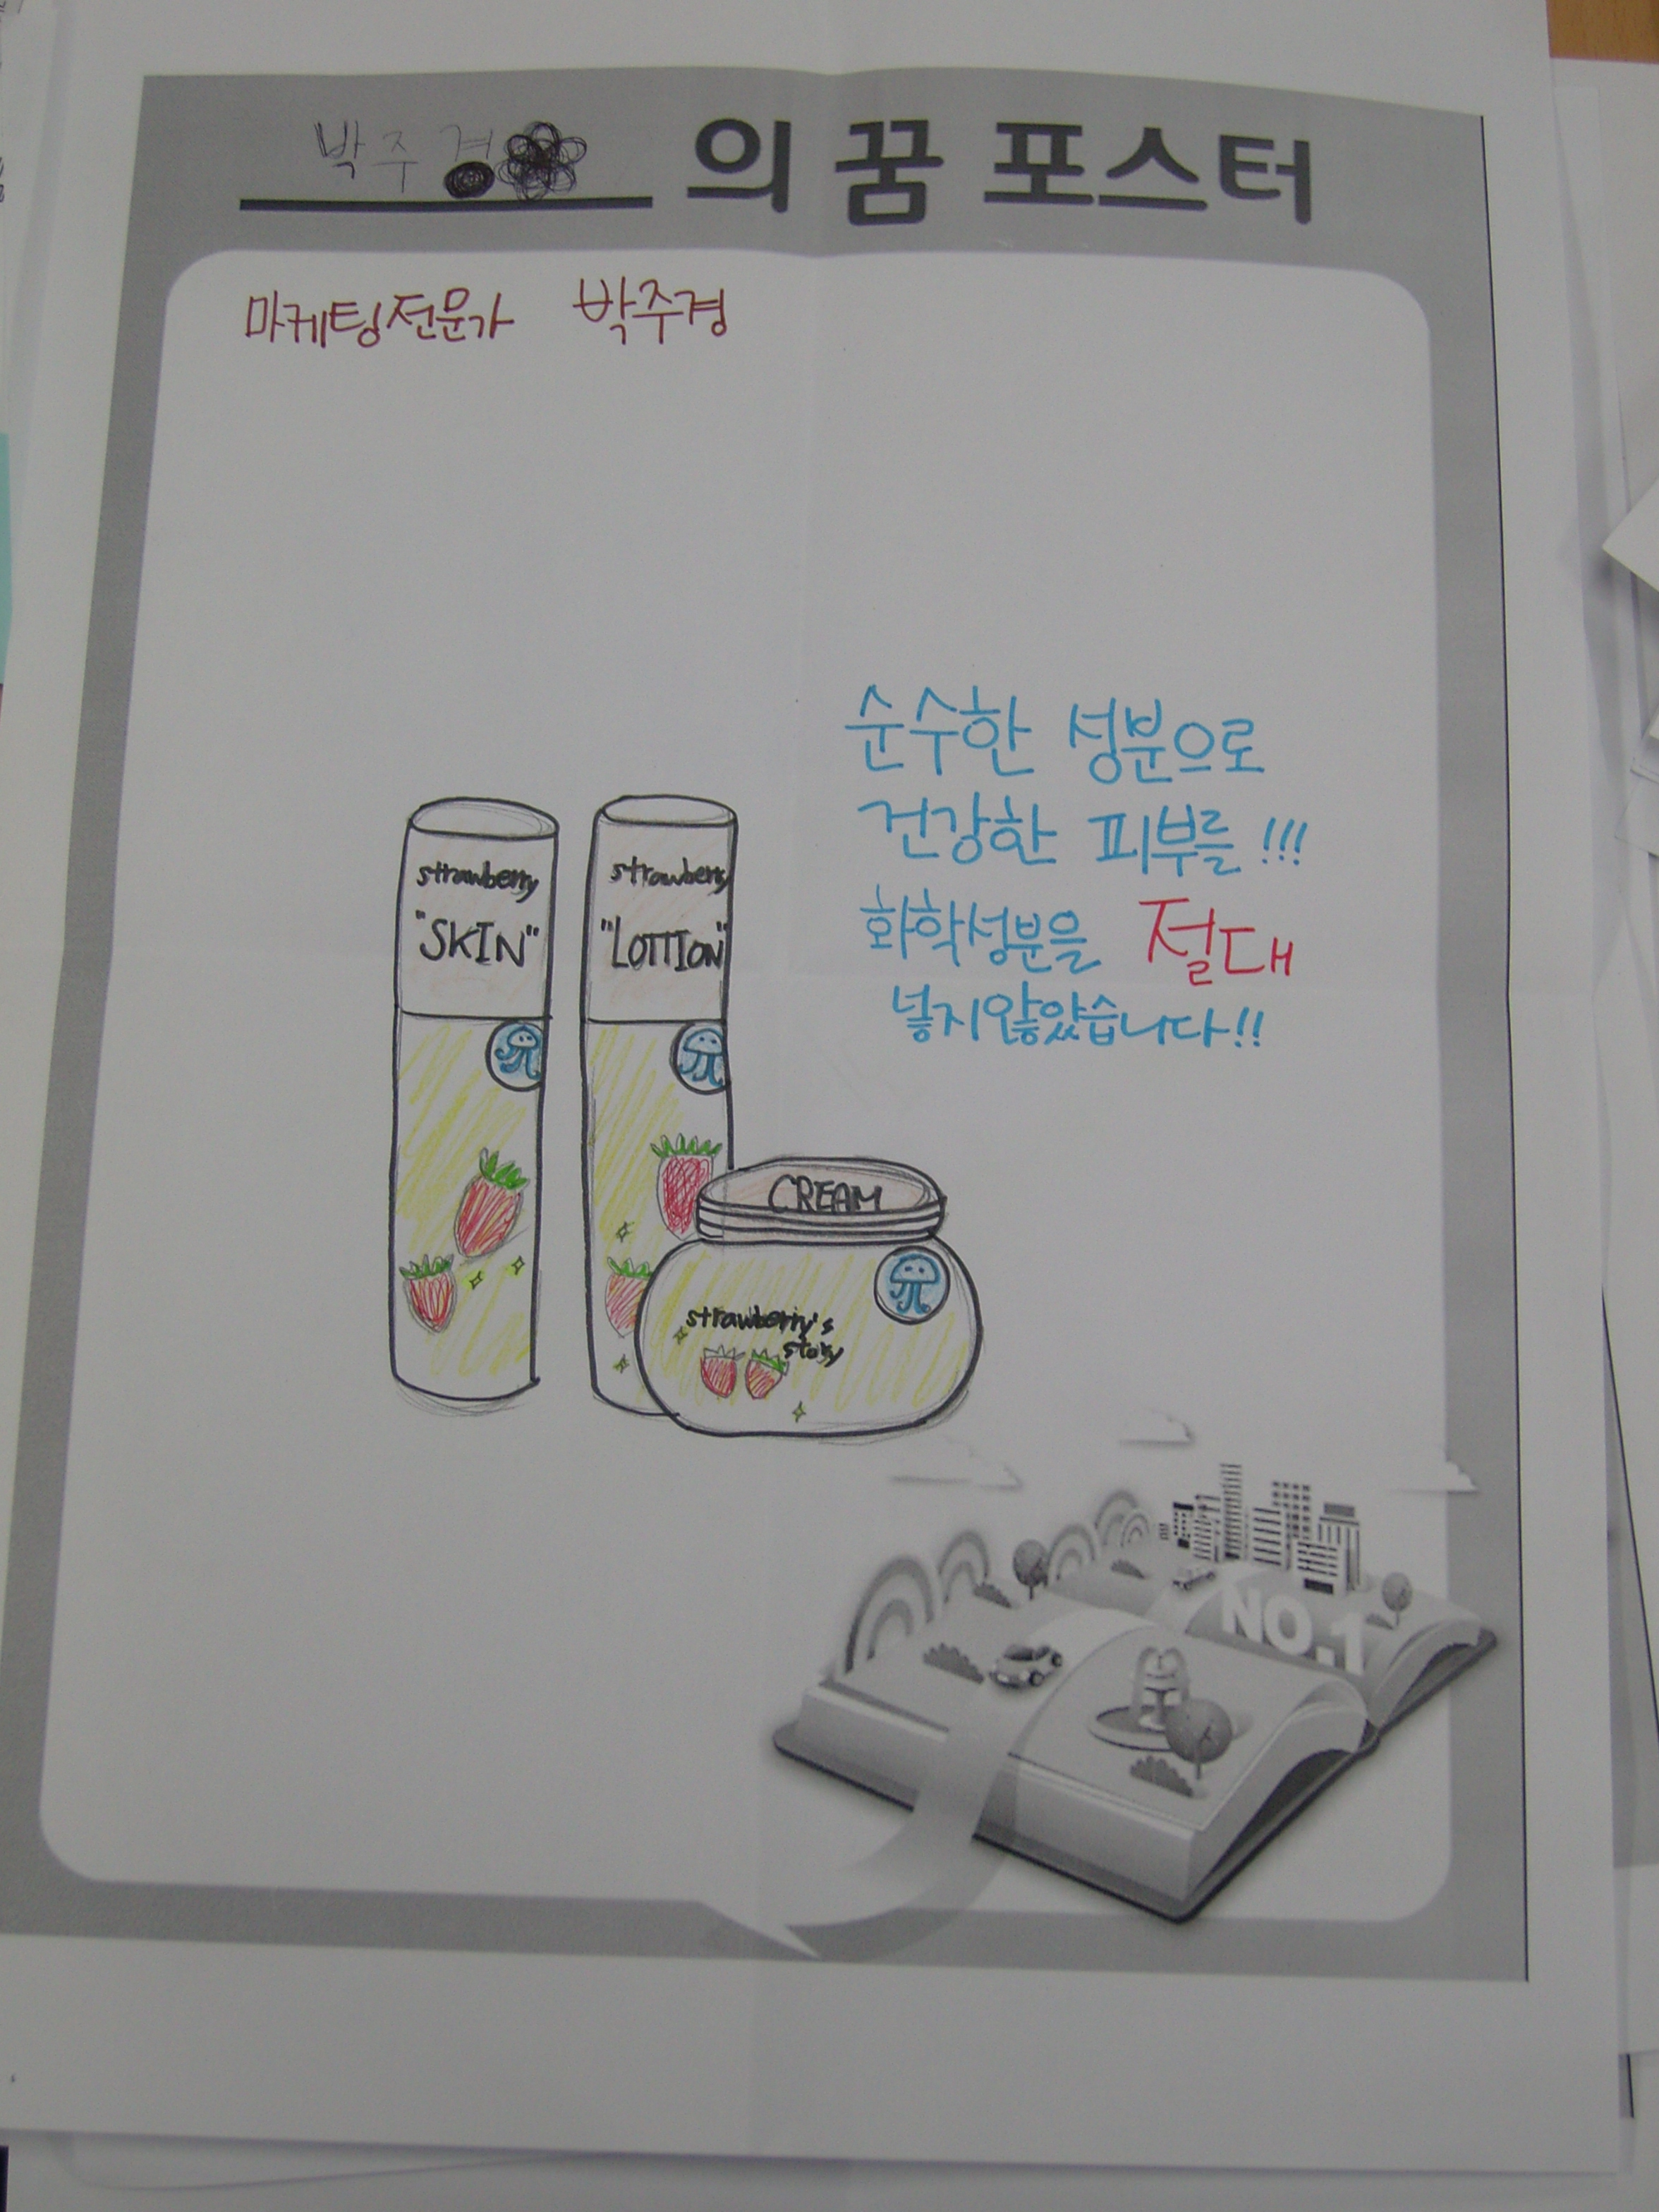 박주경의 꿈 포스터
마케팅전문가 박주경
순수한 성분으로
건강한 피부를!!!
화학성분을 절대
넣지않았습니다!!
strawberry
"SKIN"
strawberry
"LOTTION"
CREAM
strawberry's
story
NO.1